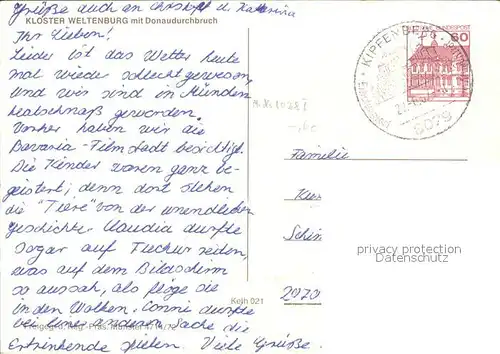 Grüße auch an Christoph u. Katharina
KLOSTER WELTENBURG mit Donaudurchbruch
Ihr Lieben!
Leider ist das Wetter heute
mal wieder schlecht gewesen
und wir sind in München
klatschnaß geworden.
Vorher haben wir die
Bavaria-Filmstadt besichtigt.
Die Kinder waren ganz be-
geistert; denn dort stehen
die "Tiere" von der unendlichen
Geschichte. Claudia durfte
sogar auf Fuchur reiten,
was auf dem Bildschirm
so aussah, als flöge sie
in den Wolken. Conni durfte
bei einer anderen Sache die
Ertrinkende spielen. Viele Grüße.
KIPFENBERG
8079
60
Familie
2070
Kelh 021
privacy protection
DatenSchutz